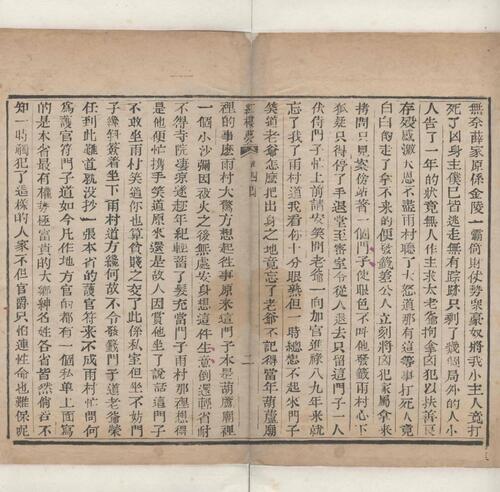 無奈薛家原係金陵一霸倚財仗勢衆豪奴將我小主人竟打
死了凶身主僕已皆逃走無有踪跡只剩了我個局外的人小
人告了一年的狀竟無人作主求太老爺拘拿凶犯以扶善良
存殁感激大恩不盡雨村聽了大怒道那有這等事打死人竟
白白的走了拿不來的便發籤差公人立刻將凶犯家屬拿來
拷問只見案傍站着一個門子使眼色不叫他發籤雨村心下
狐疑只得停了手退堂至密室令從人退去只留這門子一人
伏侍門子忙上前請安笑問老爺一向加官進祿八九年來就
忘了我了雨村道我看你十分眼熟但一時總想不起來門子
笑道老爺怎麽把出身之地竟忘了老爺不記得當年葫蘆廟
紅樓夢
第四回
二
裡的事麽雨村大驚方想起往事原來這門子本是葫蘆廟裡
一個小沙彌因被火之後無處安身想這件生意倒還輕省耐
不得寺院淒凉遂趁年紀輕蓄了髮充當門子雨村那裡想得
是他便忙携手笑道原來還是故人因賞他坐了說話這門子
不敢坐雨村笑道你也算貧賤之交了此係私室但坐不妨門
子纔斜簽着坐下雨村道方纔何故不令發籤門子道老爺榮
任到此難道就没抄一張本省的護官符來不成雨村忙問何
爲護官符門子道如今凡作地方官的都有一個私單上面寫
的是本省最有權勢極富貴的大鄕紳名姓各省皆然倘若不
知一時觸犯了這樣的人家不但官爵只怕連性命也難保呢